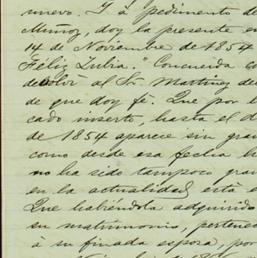 nuevo. Y á pedimento de
Muñoz, doy la presente en
14 de Noviembre de 1854
Féliz Zulia." Concuerda co
devolví al Sr. Martinez de
de que doy fé. Que por l
cado inserto, hasta el d
de 1854 aparece sin gra
como desde esa fecha h
no ha sido tampoco gra
en la actualidad, está e
Que habiéndola adquirido
su matrimonio, pertenec
á su finada esposa, por